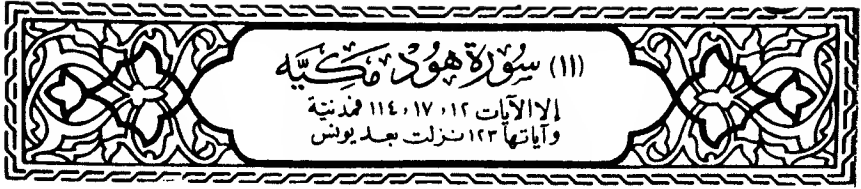 (١١) سُورَة هُودٍ مَكِّيَّه
إلا الآيات ١٢، ١٧، ١١٤ فمدنية
وآياتها ١٢٣ نزلت بعد يونس